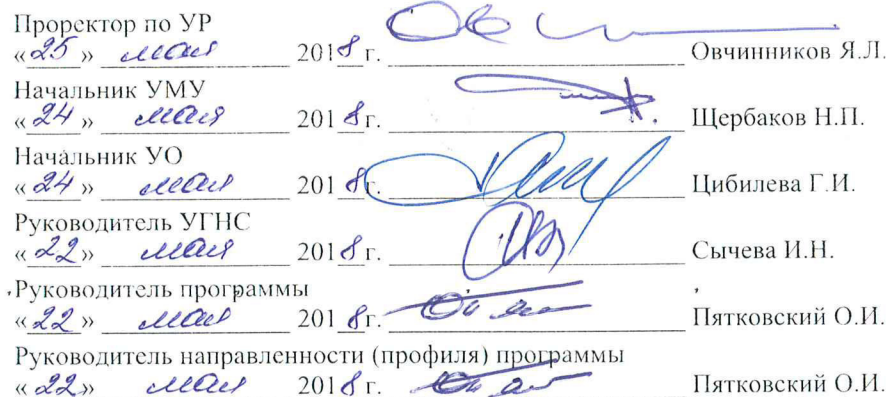 Проректор по УР
«25» мая 2018 г. Овчинников Я.Л.
Начальник УМУ
«24» мая 2018 г. Щербаков Н.П.
Начальник УО
«24» мая 2018 г. Цибилева Г.И.
Руководитель УГНС
«22» мая 2018 г. Сычева И.Н.
Руководитель программы
«22» мая 2018 г. Пятковский О.И.
Руководитель направленности (профиля) программы
«22» мая 2018 г. Пятковский О.И.